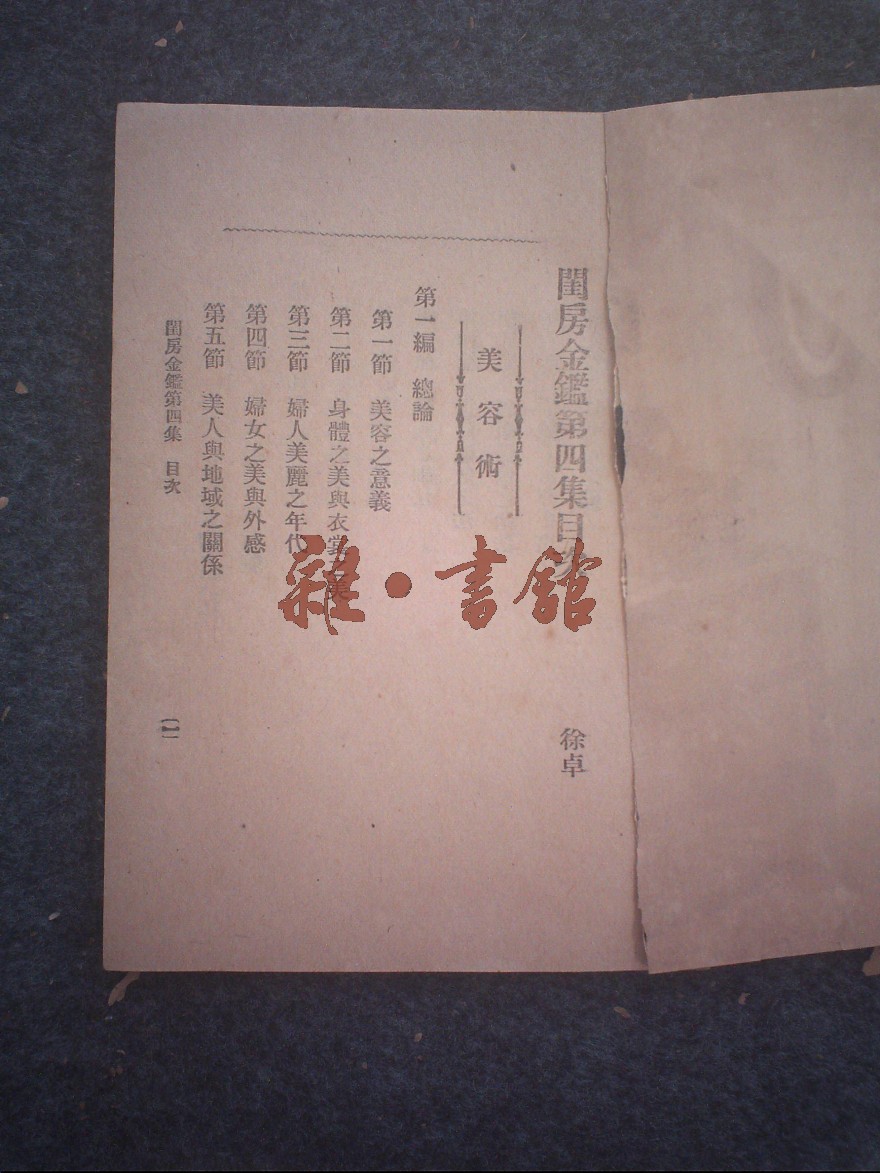 閨房金鑑第四集目次
徐卓
美容術
第一編　總論
第一節　美容之意義
第二節　身體之美與衣裳之美
第三節　婦人美麗之年代
第四節　婦女之美與外感
第五節　美人與地域之關係
閨房金鑑第四集　目次
(一)
雜·書館